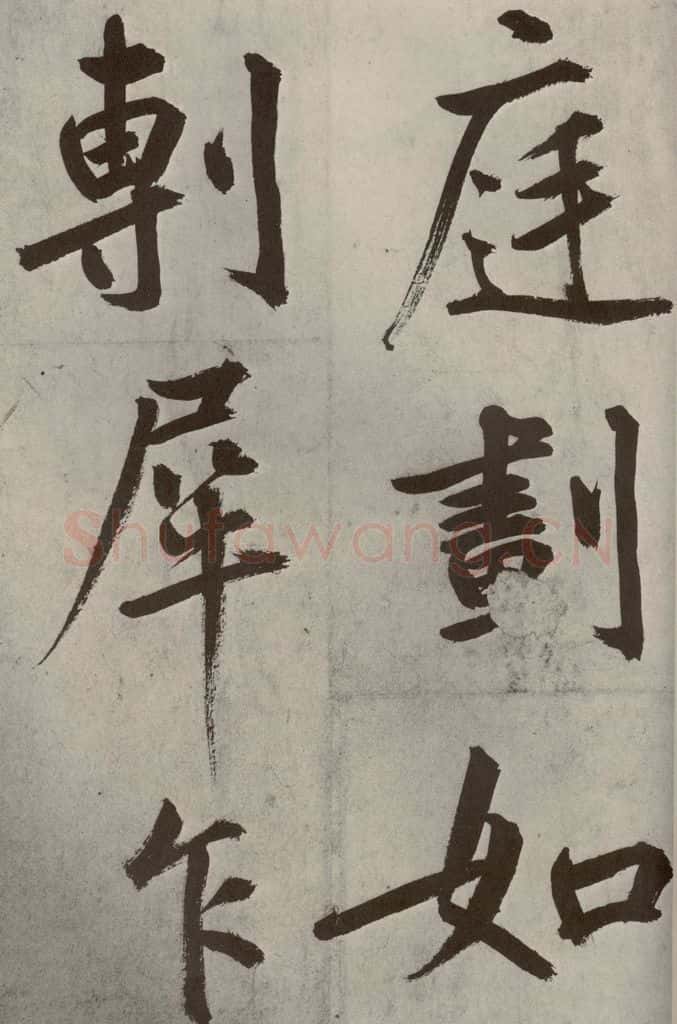 庭劃如
剸犀乍
Shufawang.CN